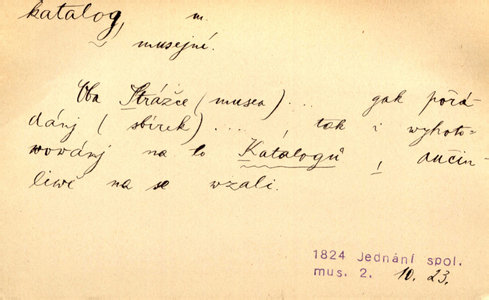 katalog, m.
musejní.
Oba Strážce (musea) ... gak pořá-
dánj (sbírek) .... , tak i wyhoto-
wowánj na to Katalogů , aučin-
liwě na se wzali.
1824 Jednání spol.
mus. 2. 10. 23.